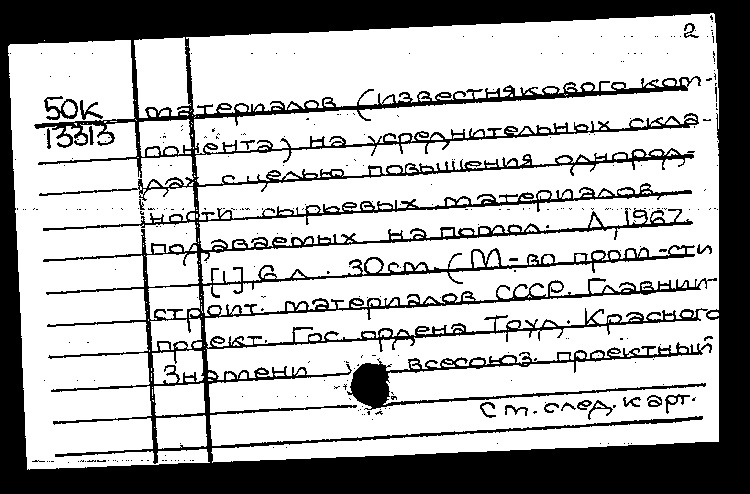 2
50К
13313
материалов (известнякового ком-
понента) на усреднительных скла-
дах с целью повышения однород-
ности сырьевых материалов,
подаваемых на помол. Л, 1967.
[1], 6 л. 30 см. (М-во пром-сти
строит. материалов СССР. Главнии
проект. Гос. ордена Труд. Красного
Знамени всесоюз. проектный
См. след. карт.